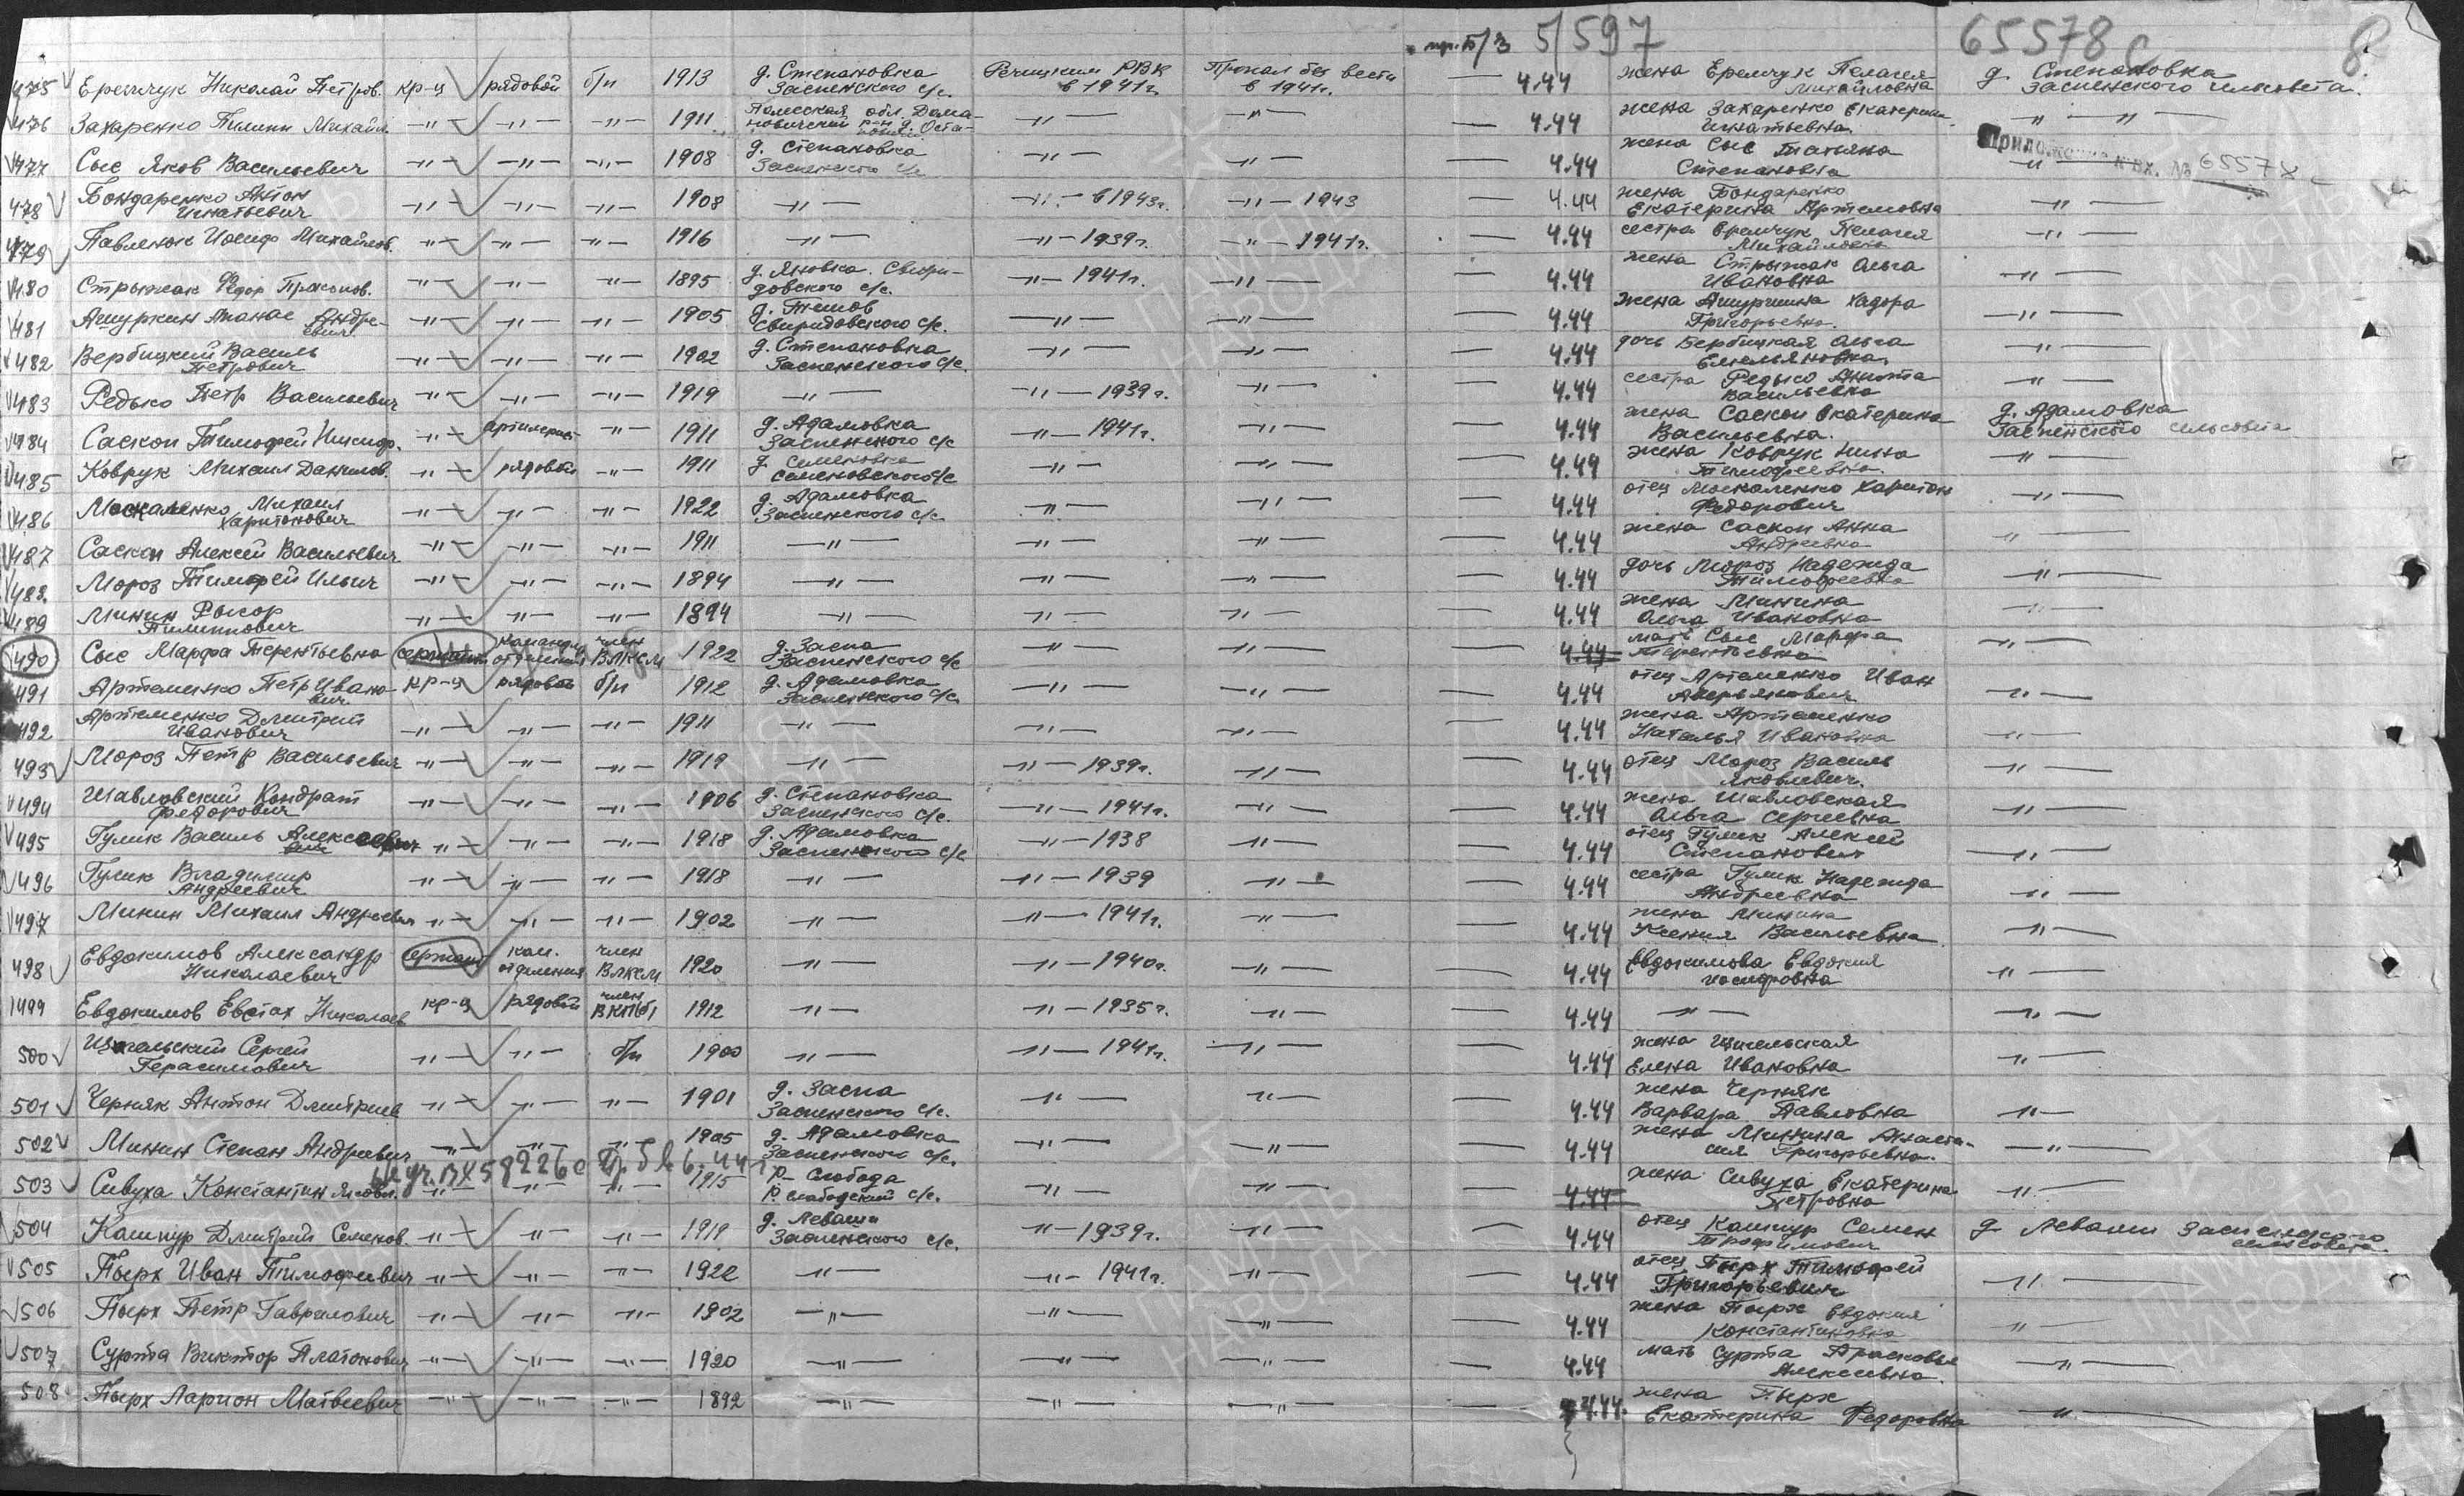 пр. б/з 5/597 65578с 8
475 Еремчук Николай Петров. кр-ц рядовой б/п 1913 д. Степановка Заспенского с/с. Речицким РВК в 1941г. Пропал без вести в 1941г. — 4.44 жена Еремчук Пелагея Михайловна д. Степановка Заспенского сельсовета.
476 Захаренко Пилип Михайл. -"- -"- -"- 1911 Полесская обл. Дома-новичский р-н д. Оста- -"- -"- — 4.44 жена Захаренко Екатерина Игнатьевна. -"- -"-
Приложение к вх. № 65578с
477 Сыс Яков Васильевич -"- -"- -"- 1908 д. Степановка Заспенского с/с -"- -"- — 4.44 жена Сыс Татьяна Степановна -"-
478 Бондаренко Антон Игнатьевич -"- -"- -"- 1908 -"- -"- в 1943г. -"- 1943 — 4.44 жена Бондаренко Екатерина Артемовна -"-
479 Павленок Иосиф Михайлов. -"- -"- -"- 1916 -"- -"- 1939г. -"- 1941г. — 4.44 сестра Еремчук Пелагея Михайловна -"-
480 Стрыжак Федор Прокопов. -"- -"- -"- 1895 д. Яновка. Свири-довского с/с. -"- 1941г. -"- — 4.44 жена Стрыжак Ольга Ивановна -"-
481 Ашуркин Апанас Андре-евич -"- -"- -"- 1905 д. Тешов Свиридовского с/с. -"- -"- — 4.44 жена Ашуркина Хадора Григорьевна. -"-
482 Вербицкий Василь Петрович -"- -"- -"- 1902 д. Степановка Заспенского с/с. -"- -"- — 4.44 дочь Вербицкая Ольга Емельяновна. -"-
483 Редько Петр Васильевич -"- -"- -"- 1919 -"- -"- 1939г. -"- — 4.44 сестра Редько Анюта Васильевна -"-
484 Саскон Тимофей Никифр. -"- артилерист -"- 1911 д. Адамовка Заспенского с/с -"- 1941г. -"- — 4.44 жена Саскон Екатерина Васильевна. д. Адамовка Заспенского сельсовета
485 Коврук Михаил Данилов. -"- рядовой -"- 1911 д. Семеновка Семеновского с/с -"- -"- — 4.44 жена Коврук Нина Тимофеевна. -"-
486 Москаленко Михаил Харитонович -"- -"- -"- 1922 д. Адамовка Заспенского с/с -"- -"- — 4.44 отец Москаленко Харитон Федорович -"-
487 Саскон Алексей Васильевич -"- -"- -"- 1911 -"- -"- -"- — 4.44 жена Саскон Анна Андреевна -"-
488. Мороз Тимофей Ильич -"- -"- -"- 1894 -"- -"- -"- — 4.44 дочь Мороз Надежда Тимофеевна -"-
489 Минин Рыгор Пилиппович -"- -"- -"- 1894 -"- -"- -"- — 4.44 жена Минина Ольга Ивановна -"-
490 Сыс Марфа Терентьевна сержант командир отделения член ВЛКСМ 1922 д. Заспа Заспенского с/с -"- -"- — 4.44 мать Сыс Марфа Терентьевна -"-
491 Артеменко Петр Ивано-вич кр-ц рядовой б/п 1912 д. Адамовка Заспенского с/с -"- -"- — 4.44 отец Артеменко Иван Аверьянович -"-
492 Артеменко Дмитрий Иванович -"- -"- -"- 1911 -"- -"- -"- — 4.44 жена Артеменко Наталья Ивановна -"-
493 Мороз Петр Васильевич -"- -"- -"- 1919 -"- -"- 1939г. -"- — 4.44 отец Мороз Василь Яковлевич. -"-
494 Шавловский Кондрат Федорович -"- -"- -"- 1906 д. Степановка Заспенского с/с. -"- 1941г. -"- — 4.44 жена Шавловская Ольга Сергеевна -"-
495 Гулик Василь Алексеевич -"- -"- -"- 1918 д. Адамовка Заспенского с/с -"- 1938 -"- — 4.44 отец Гулик Алексей Степанович -"-
496 Гулик Владимир Андреевич -"- -"- -"- 1918 -"- -"- 1939 -"- — 4.44 сестра Гулик Надежда Андреевна -"-
497 Минин Михаил Андреевич -"- -"- -"- 1902 -"- -"- 1941г. -"- — 4.44 жена Минина Ксения Васильевна -"-
498 Евдокимов Александр Николаевич сержант ком. отделения член ВЛКСМ 1920 -"- -"- 1940г. -"- — 4.44 Евдокимова Евдокия Иосифовна -"-
499 Евдокимов Евстах Николаев кр-ц рядовой член ВКП(б) 1912 -"- -"- 1935г. -"- — 4.44 -"- -"-
500 Сергей Герасимович -"- -"- б/п 1900 -"- -"- 1941г. -"- — 4.44 жена Елена Ивановна -"-
501 Черняк Антон Дмитриев -"- -"- -"- 1901 д. Заспа Заспенского с/с. -"- -"- — 4.44 жена Черняк Варвара Павловна -"-
502 Минин Степан Андреевич -"- -"- -"- 1905 д. Адамовка Заспенского с/с. -"- -"- — 4.44 жена Минина Анаста-сия Григорьевна. -"-
уч. вх 58226с
503 Сивуха Константин Яковл. -"- -"- -"- 1915 Р-Слобода Р. Слободский с/с. -"- -"- — 4.44 жена Сивуха Екатерина Петровна -"-
504 Кашпур Дмитрий Семенов. -"- -"- -"- 1919 д. Леваши Заспенского с/с. -"- 1939г. -"- — 4.44 отец Кашпур Семен Трофимович д Леваши Заспенского сельсовета.
505 Пырх Иван Тимофеевич -"- -"- -"- 1922 -"- -"- 1941г. -"- — 4.44 отец Пырх Тимофей Григорьевич -"-
506 Пырх Петр Гаврилович -"- -"- -"- 1902 -"- -"- -"- 4.44 жена Пырх Евдокия Константиновна -"-
507 Сурта Виктор Платонович -"- -"- -"- 1920 -"- -"- -"- — 4.44 мать Сурта Прасковья Алексеевна. -"-
508 Пырх Ларион Матвеевич -"- -"- -"- 1892 -"- -"- -"- 4.44. жена Пырх Екатерина Федоровна -"-
ПАМЯТЬ НАРОДА